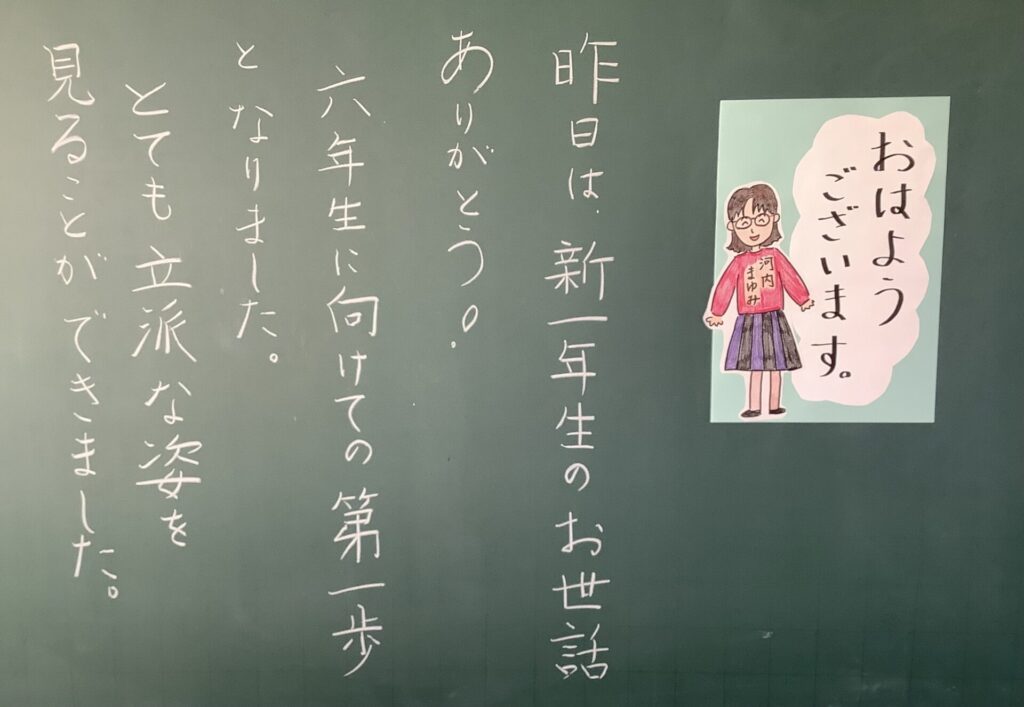 おはよう
ございます。
河内
まゆみ
昨日は、新一年生のお世話
ありがとう。
六年生に向けての第一歩
となりました。
とても立派な姿を
見ることができました。